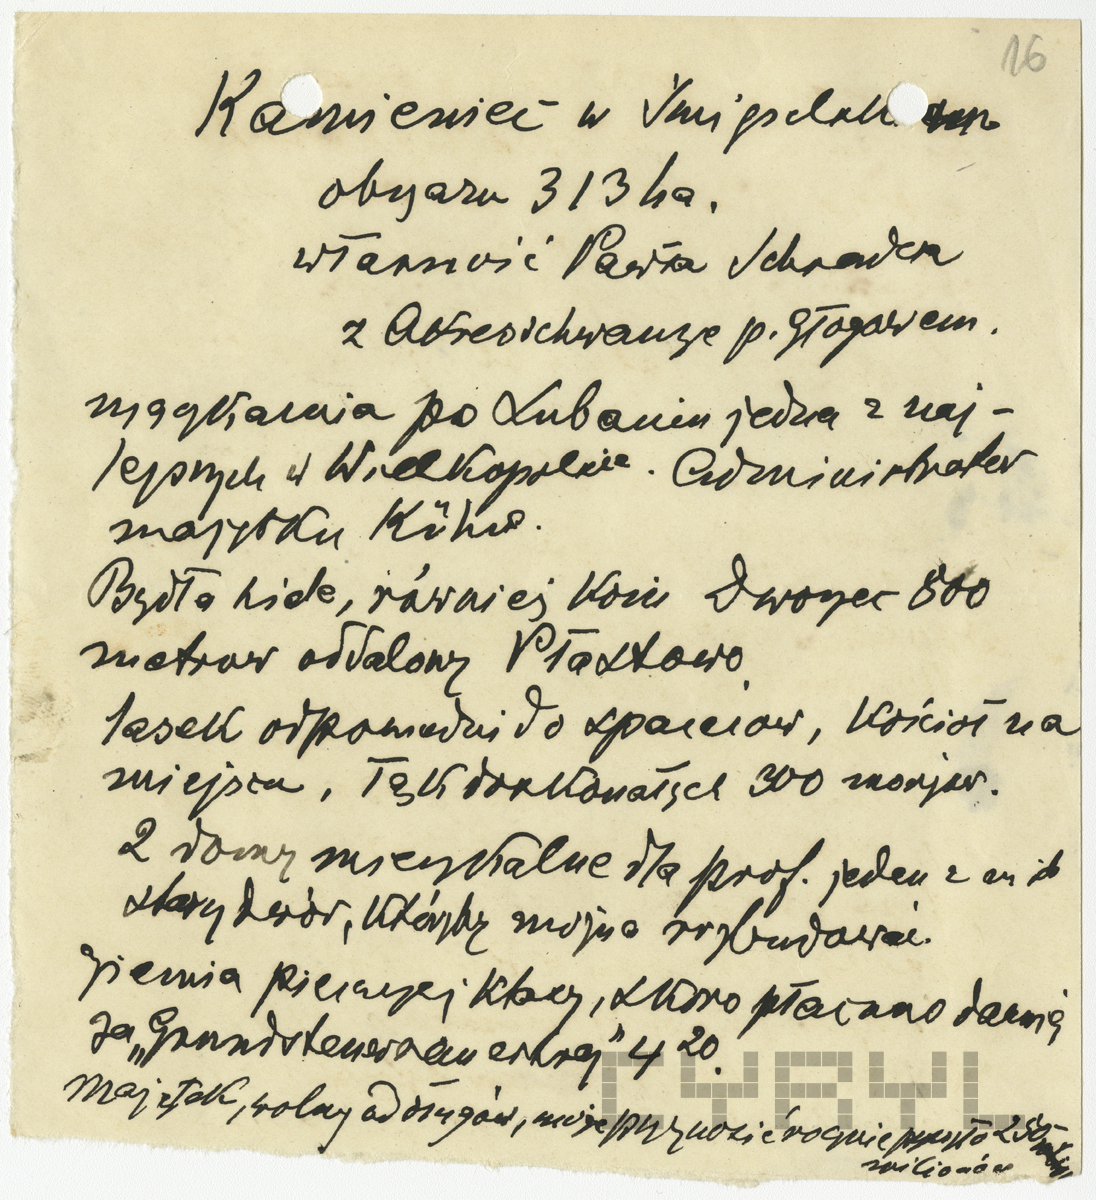 16
Kamieniec w Śmigielsk.
obszaru 313 ha.
własność Pawła Schradera
z p. Głogowem.
mączkarnia po Luboniu jedna z naj-
lepszych w Wielkopolsce. Administrator
majątku Kühn.
Bydła wiele, również koni Dworzec 800
metrow oddalony Ptaszkowo
lasek odpowiedni do spacerow, Kościoł na
miejscu, łąk doskonałych 300 morgow.
2 domy mieszkalne dla prof. jeden z nich
stary dwór, któryby można rozbudować.
Ziemia pierwszej klasy, skoro płacono dawniej
za „Grundsteuer 4 20.
Majątek, wolny od długów, może przynosić rocznie 250
milionów
CYRYL